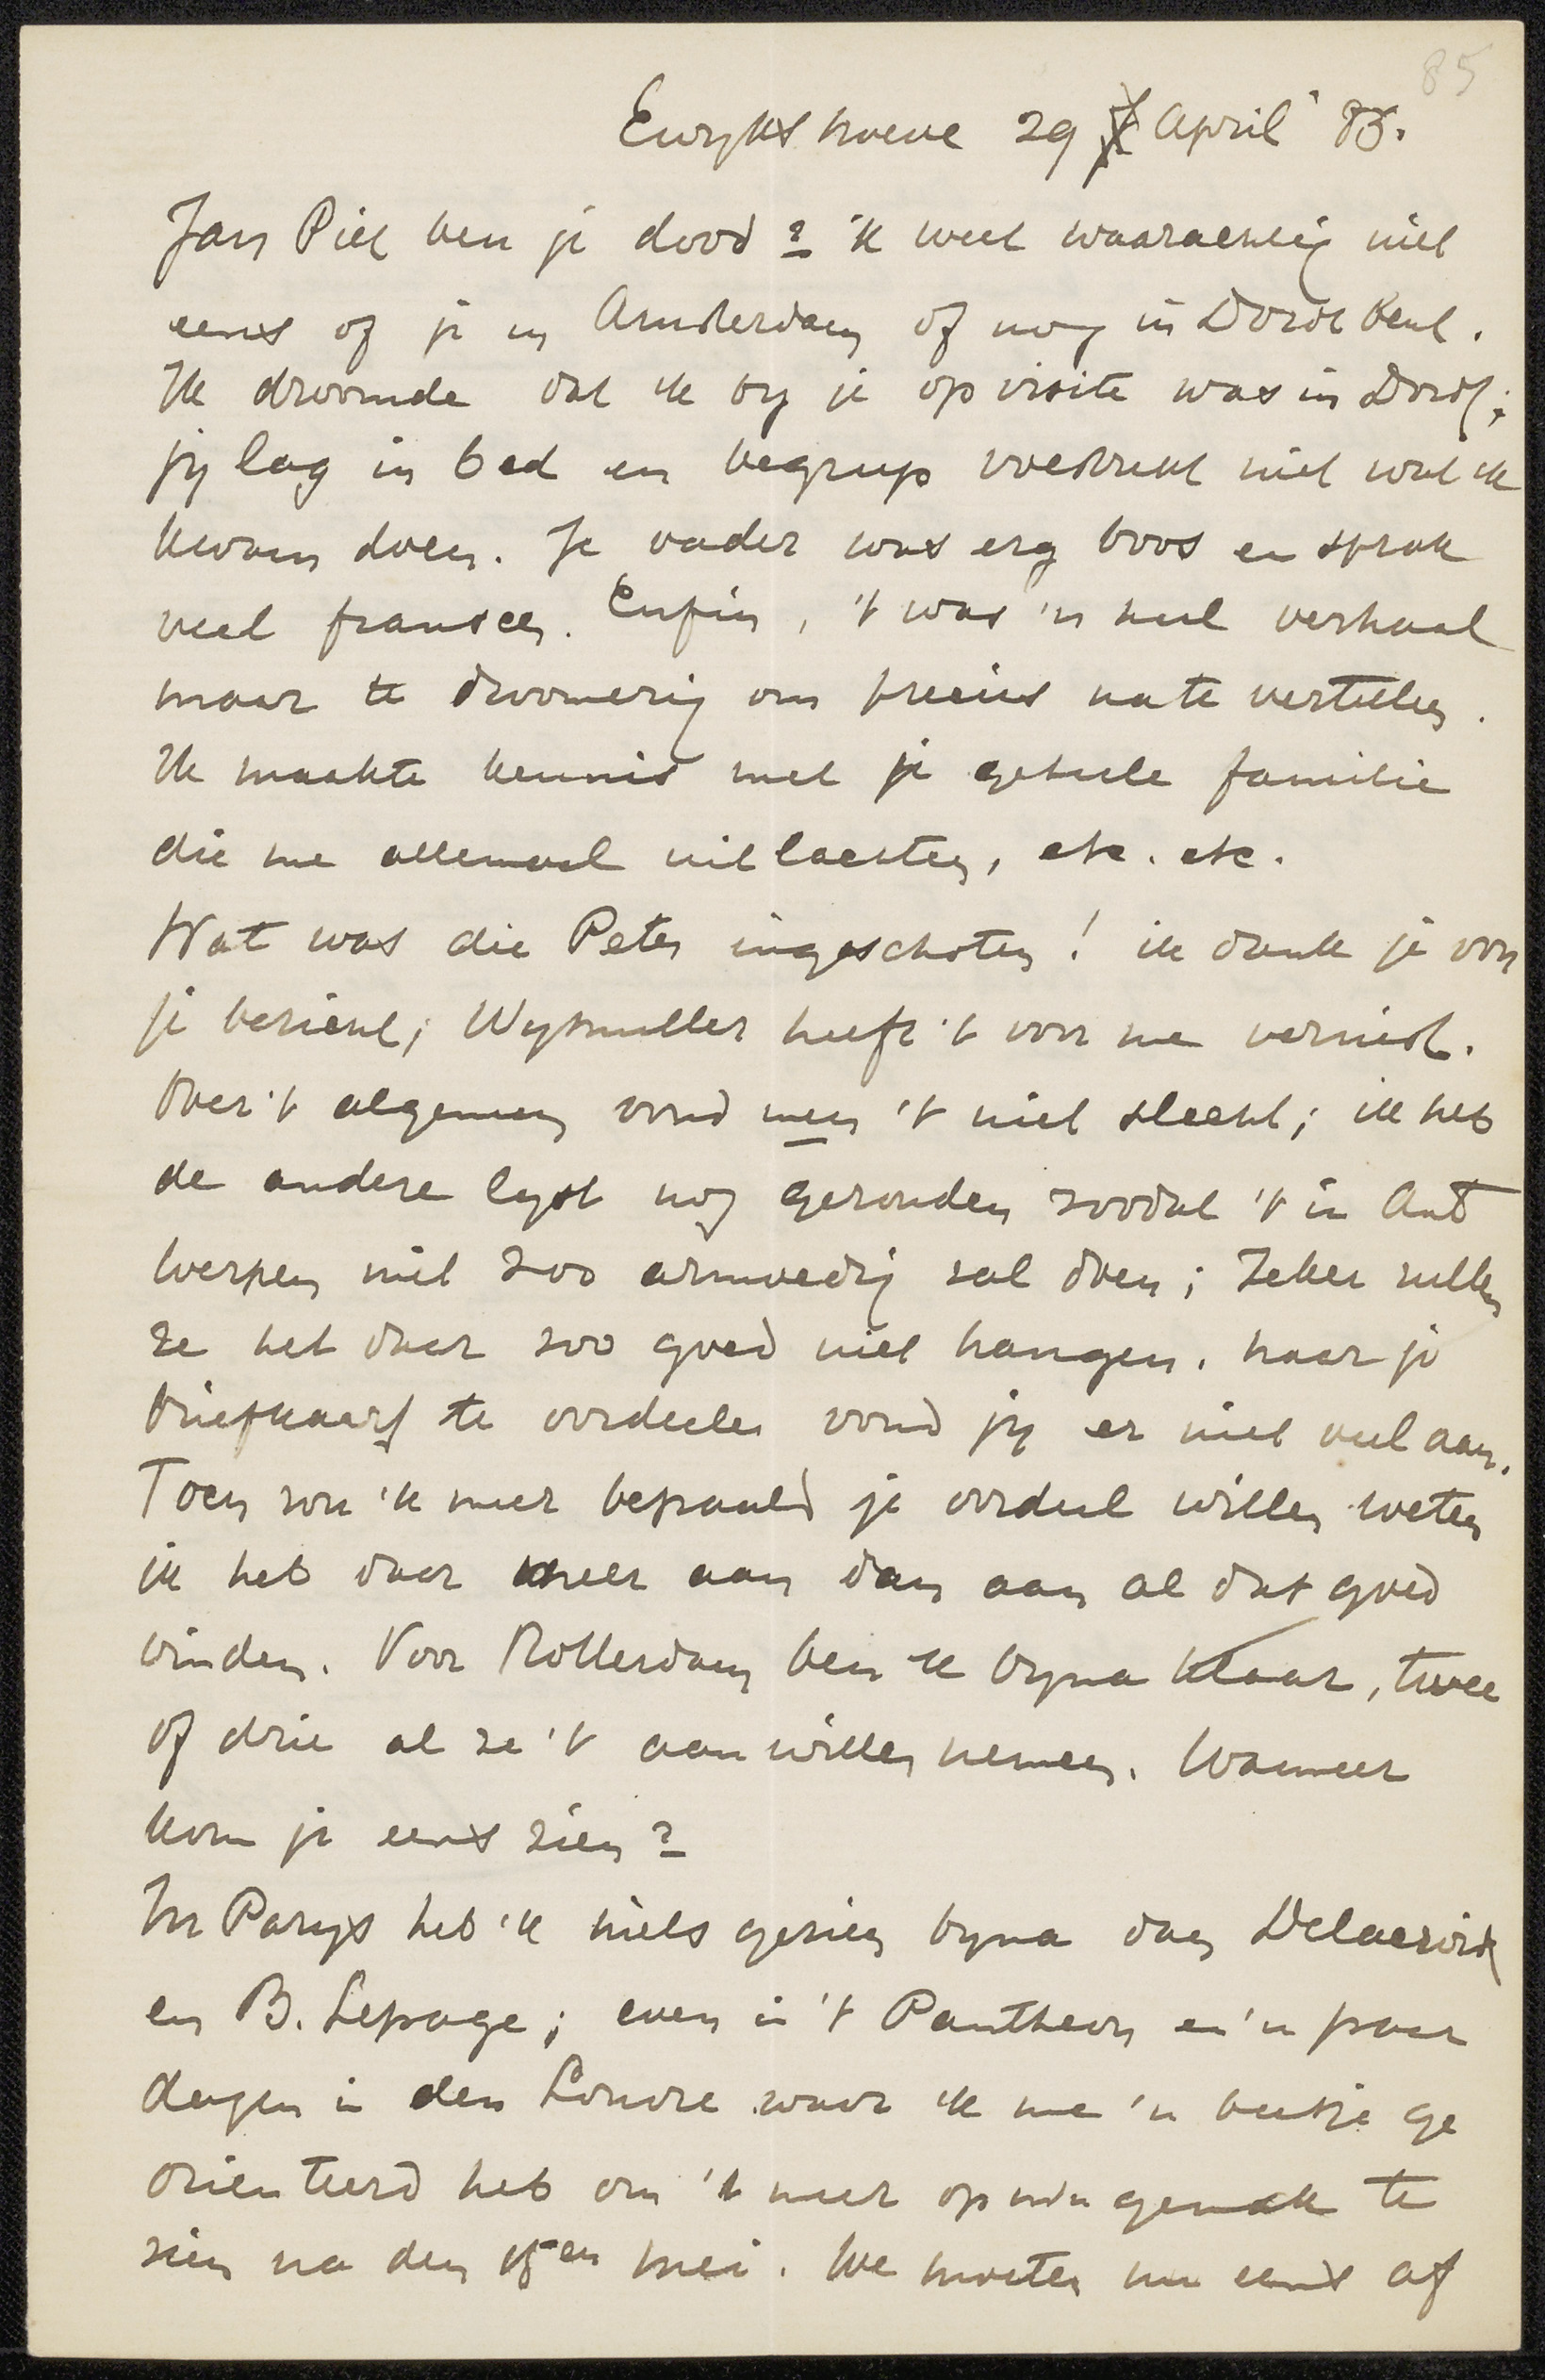 85
Ewijkshoeve 29 April '85.
Jan Piet ben je dood? ik weet waarachtig niet
eens of je in Amsterdam of nog in Dordt bent.
Ik droomde dat ik by je op visite was in Dordt;
jij lag in bed en begreep volstrekt niet wat ik
kwam doen. Je vader was erg boos en sprak
veel fransch. Enfin, 't was 'n heel verhaal
maar te droomerig om precies na te vertellen.
Ik maakte kennis met je geheele familie
die me allemaal uitlachten, etc. etc.
Wat was die Peter ingeschoten! ik dank je voor
je bericht; Wysmuller heeft 't voor me vernist.
Over 't algemeen vond men 't niet slecht; ik heb
de andere lyst nog gezonden zoodat 't in Ant
werpen niet zoo armoedig zal doen; zeker zullen
ze het daar zoo goed niet hangen. naar je
briefkaart te oordeelen vond jy er niet veel aan.
Toch zou 'k meer bepaald je oordeel willen weten
ik heb daar meer aan dan aan al dat goed
vinden. Voor Rotterdam ben 'k byna klaar, twee
of drie al ze 't aan willen nemen. Wanneer
kom je eens zien?
In Parys heb 'k niets gezien byna dan Delacroix
en B. Lepage; even in 't Pantheon en 'n paar
dagen in den Louvre waar ik me 'n beetje ge
orienteerd heb om 't meer op m'n gemak te
zien na den 15en Mei. We moeten nu eens af